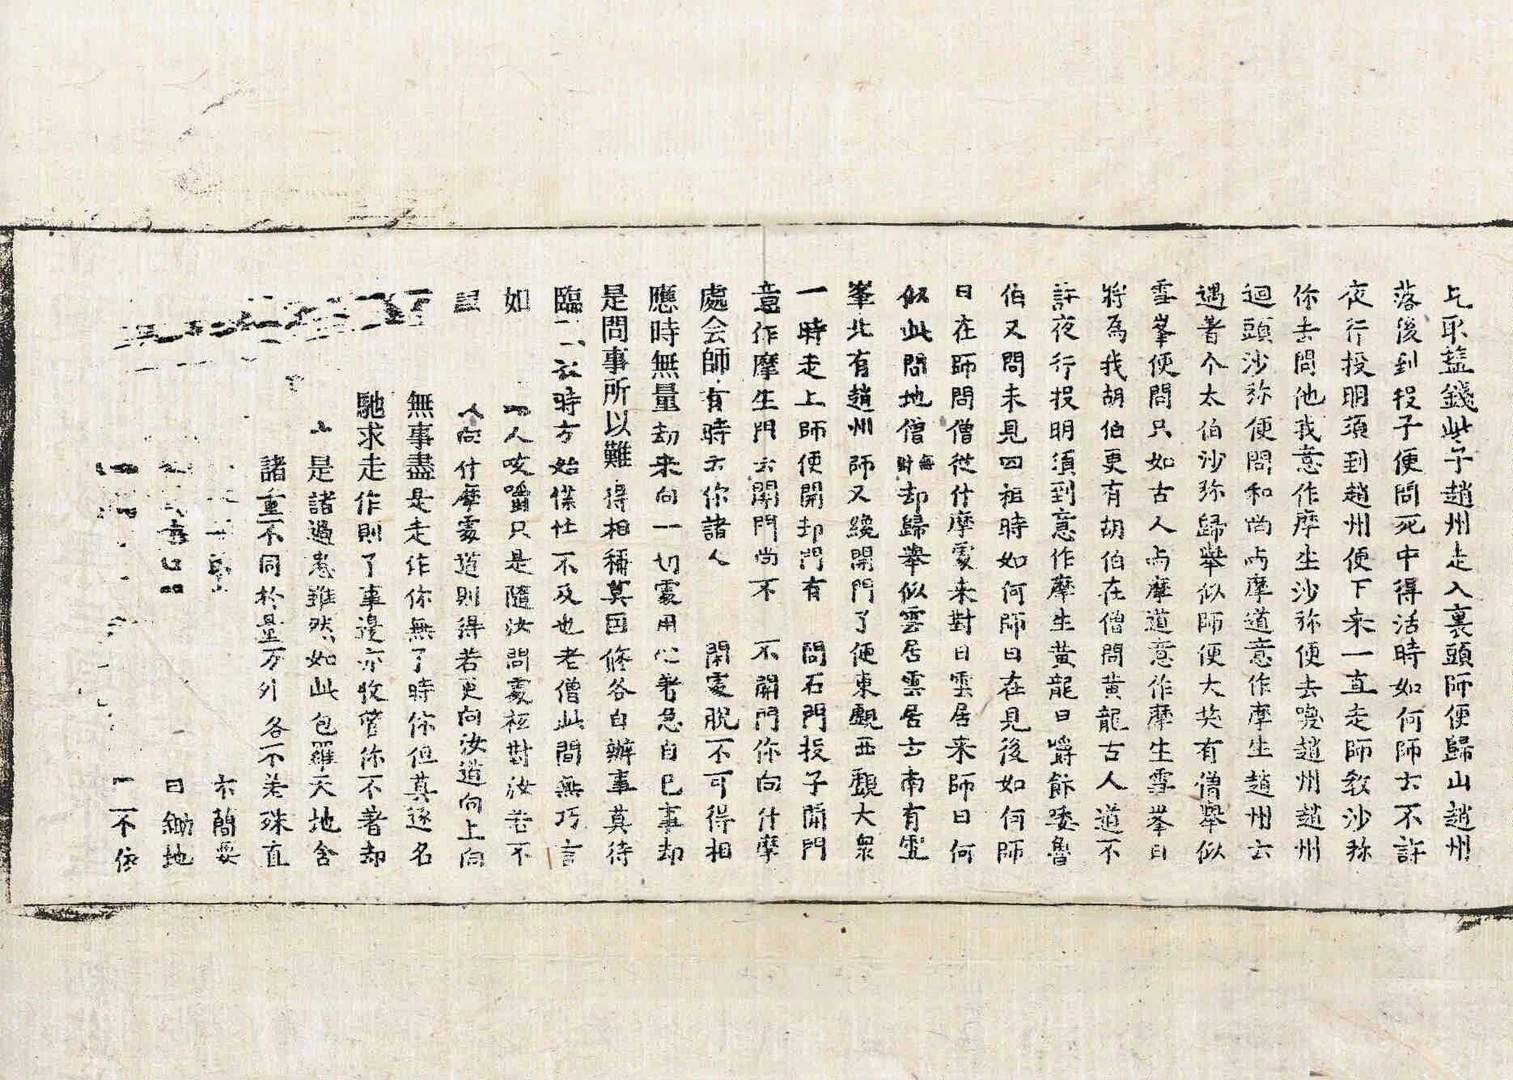 乞取盐錢此子趙州走入裏頭師便歸山趙州
落後到投子便問死中得活時如何師云不許
夜行投明須到趙州便下来一直走師教沙弥
你去問他我意作摩生沙弥便去喚趙州趙州
迴頭沙弥便問和尚与摩道意作摩生趙州云
遇著个太伯沙弥歸舉似師便大笑有僧舉似
雪峯便問只如古人与摩道意作摩生雪峯曰
將為我胡伯更有胡伯在僧問黄龍古人道不
許夜行投明須到意作摩生黄龍曰嚼飰餧魯
伯又問未見四祖時如何師曰在見後如何師
曰在師問僧從什摩處来對曰雲居来師曰何
似此問地僧無對却歸舉似雲居雲居云南有雪
峯北有趙州師又繞開門了便東覷西覷大衆
一時走上師便閉却門有問石門投子開門
意作摩生門云開門尚不不開門你向什摩
處会師有時云你諸人閑處脱不可得相
應時無量劫来向一切處用心著急自己事却
是問事所以難得相稱莫因修各自辦事莫待
臨時方始僕仕不及也老僧此間無巧言
如人咬嚼只是隨汝問處秖對汝若不
人向什摩處道則得若更向汝道向上向
無事盡是走作你無了時你但莫逐名
馳求走作則了事邊亦收管你不著却
是諸過患雖然如此包羅天地含
諸重不同於量方外各不差殊直
簡要
曰鋤地
不依